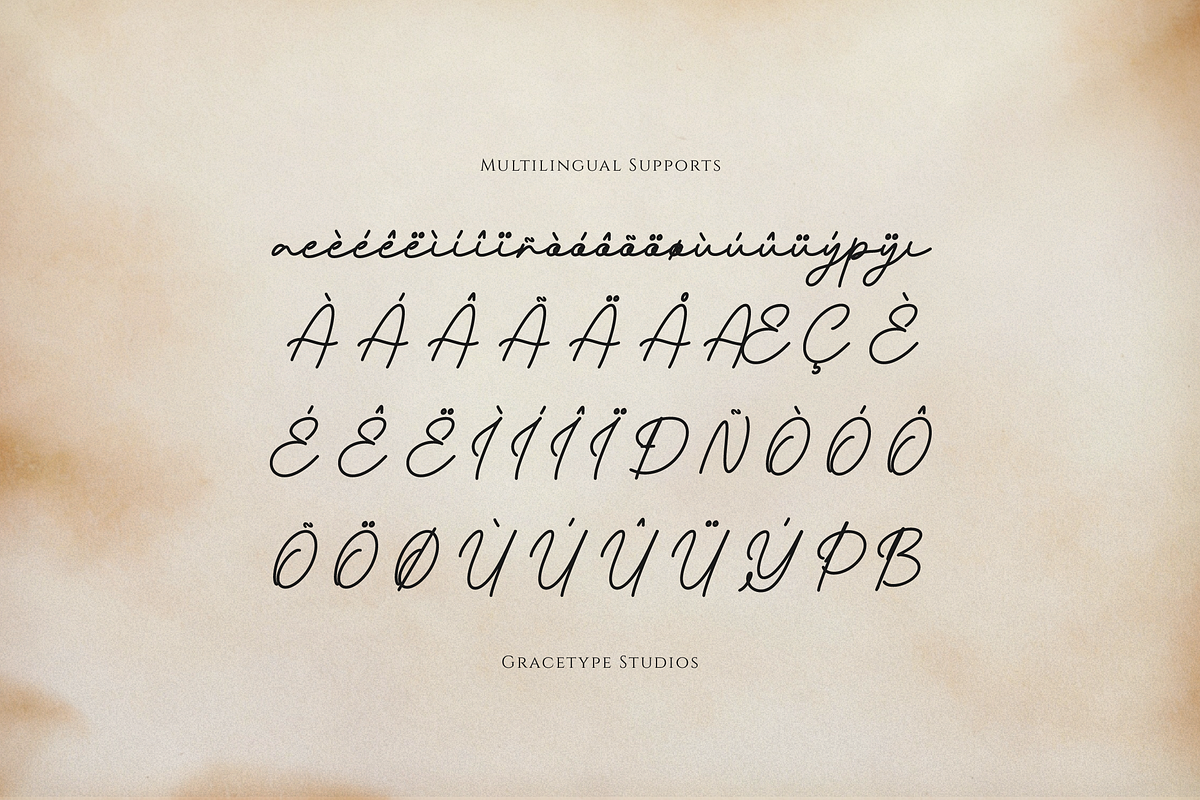 Multilingual Supports
æèéêëìíîïñòóôõöøùúûüýþÿı
À Á Â Ã Ä Å Æ Ç È
É Ê Ë Ì Í Î Ï Ð Ñ Ò Ó Ô
Õ Ö Ø Ù Ú Û Ü Ý Þ B
Gracetype Studios